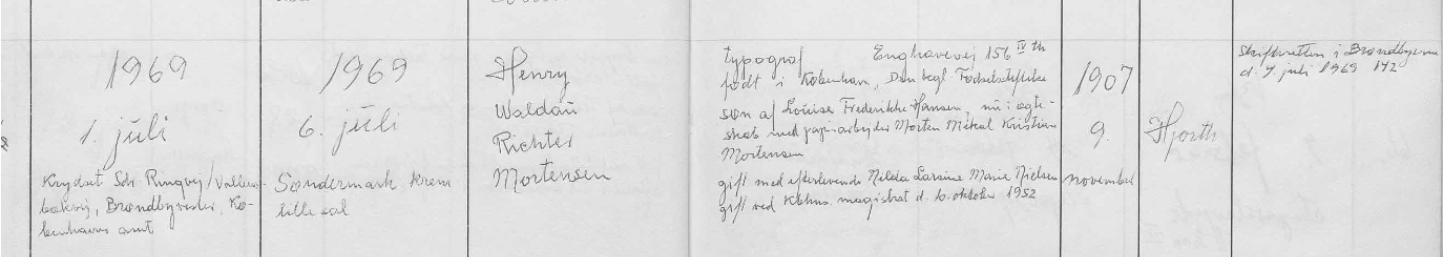 1969
1. juli
Krydset Sdr. Ringvej/Vallens-
bækvej, Brøndbyvester, Kø-
benhavns amt
1969
6. juli
Søndermark krem
lille sal
Henry
Waldau
Richter
Mortensen
typograf Enghavevej 156 IV th
født i København, Den kgl. Fødselsstiftelse
søn af Louise Frederikke Hansen, nu i ægte-
skab med papirarbejder Morten Mikal Kristian
Mortensen
gift med efterlevende Nilda Larsine Marie Nielsen
gift ved Kbhvns. magistrat d. 10. oktober 1952
1907
9.
november
Hjorth
Skifteretten i Brøndbyerne
d. 7. juli 1969 142